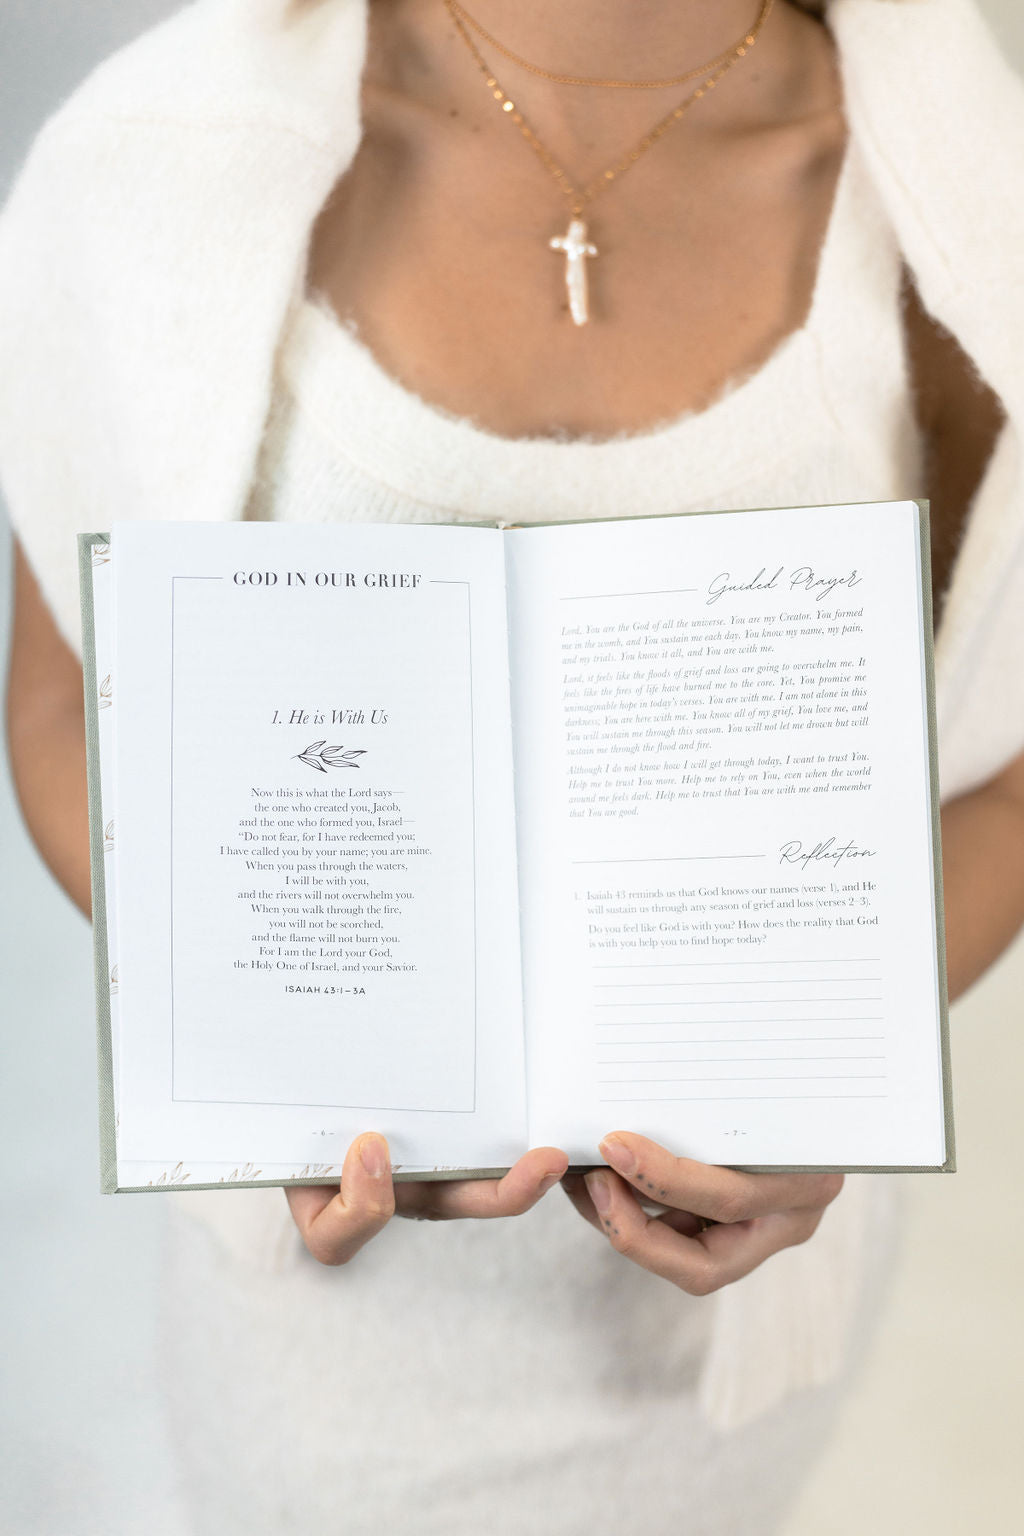 GOD IN OUR GRIEF
1. He is With Us
Now this is what the Lord says—
the one who created you, Jacob,
and the one who formed you, Israel—
“Do not fear, for I have redeemed you;
I have called you by your name; you are mine.
When you pass through the waters,
I will be with you,
and the rivers will not overwhelm you.
When you walk through the fire,
you will not be scorched,
and the flame will not burn you.
For I am the Lord your God,
the Holy One of Israel, and your Savior.
ISAIAH 43:1–3A
– 6 –
Guided Prayer
Lord, You are the God of all the universe. You are my Creator. You formed
me in the womb, and You sustain me each day. You know my name, my pain,
and my trials. You know it all, and You are with me.
Lord, it feels like the floods of grief and loss are going to overwhelm me. It
feels like the fires of life have burned me to the core. Yet, You promise me
unimaginable hope in today’s verses. You are with me. I am not alone in this
darkness; You are here with me. You know all of my grief, You love me, and
You will sustain me through this season. You will not let me drown but will
sustain me through the flood and fire.
Although I do not know how I will get through today, I want to trust You.
Help me to trust You more. Help me to rely on You, even when the world
around me feels dark. Help me to trust that You are with me and remember
that You are good.
Reflection
1. Isaiah 43 reminds us that God knows our names (verse 1), and He
will sustain us through any season of grief and loss (verses 2–3).
Do you feel like God is with you? How does the reality that God
is with you help you to find hope today?
– 7 –